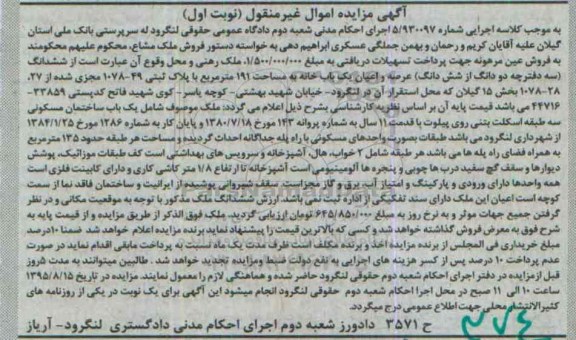 آگهی مزایده اموال غیرمنقول (نوبت اول)
به موجب کلاسه اجرایی شماره ۵/۹۳۰۰۹۷ اجرای احکام مدنی شعبه دوم دادگاه عمومی حقوقی لنگرود له سرپرستی بانک ملی استان
گیلان علیه آقایان کریم و رحمان و بهمن جملگی عسکری ابراهیم دهی به خواسته دستور فروش ملک مشاع، محکوم علیهم محکومند
به فروش عین مرهونه جهت پرداخت تسهیلات دریافتی به مبلغ ۱/۵۰۰/۰۰۰/۰۰۰ ملک رهنی و محل وقوع آن عبارت است از ششدانگ
(سه دفترچه دو دانگ از شش دانگ) عرصه و اعیان یک باب خانه به مساحت ۱۹۱ مترمربع با پلاک ثبتی ۴۹-۱۰۷۸ مجزی شده از ۲۷،
۲۸-۱۰۷۸ بخش ۱۵ گیلان که محل استقرار آن در لنگرود- خیابان شهید بهشتی- کوچه یاسر- کوی شهید فاتح کدپستی ۳۳۸۵۹-
۴۴۷۱۶ می باشد قیمت پایه آن بر اساس نظریه کارشناسی بشرح ذیل اعلام می گردد: ملک موصوف شامل یک باب ساختمان مسکونی
سه طبقه اسکلت بتنی روی پیلوت با قدمت ۱۱ سال به شماره پروانه ۱۴۳ مورخ ۱۳۸۰/۷/۱۸ و پایان کار به شماره ۱۲۸۶ مورخ ۱۳۸۴/۱/۲۵
از شهرداری لنگرود می باشد طبقات بصورت واحدهای مسکونی با راه پله جداگانه احداث گردیده و مساحت هر طبقه حدود ۱۳۵ مترمربع
به همراه فضای راه پله ها می باشد هر طبقه شامل ۲ خواب، هال، آشپزخانه و سرویس های بهداشتی است کف طبقات موزائیک، پوشش
دیوارها و سقف گچ سفید درب ها چوبی و پنجره ها آلومینیومی است آشپزخانه تا ارتفاع ۱/۸ متر کاشی کاری و دارای کابینت فلزی است
همه واحدها دارای ورودی و پارکینگ و امتیاز آب، برق و گاز مجزاست. سقف شیروانی پوشیده از ایرانیت و ساختمان فاقد نما از سمت
کوچه است اعیان این ملک دارای سند تفکیکی از اداره ثبت نمی باشد. ارزش ششدانگ ملک مذکور با توجه به موقعیت مکانی و در نظر
گرفتن جمیع جهات موثر و به نرخ روز به مبلغ ۶۴۵/۸۵۰/۰۰۰ تومان ارزیابی گردید. ملک فوق الذکر از طریق مزایده و از قیمت پایه به
شرح فوق به معرض فروش گذاشته خواهد شد و کسی که بالاترین قیمت را پیشنهاد نماید برنده مزایده اعلام خواهد شد ضمنا ۱۰درصد
مبلغ خریداری فی المجلس از برنده مزایده اخذ و برنده مکلف است ظرف مدت یک ماه نسبت به پرداخت مابقی اقدام نماید در صورت
عدم پرداخت ۱۰ درصد پس از کسر هزینه های اجرایی به نفع دولت ضبط ومزایده تجدید خواهد شد . طالبین میتوانند به مدت ۵روز
قبل ازمزایده در دفتر اجرای احکام شعبه دوم حقوقی لنگرود حاضر شده و هماهنگی لازم را معمول نمایند. مزایده در تاریخ ۱۳۹۵/۸/۱۵
ساعت ۱۰ الی ۱۱ صبح در محل اجرا احکام شعبه دوم حقوقی لنگرود انجام میشود این آگهی برای یک نوبت در یکی از روزنامه های
کثیرالانتشار محلی جهت اطلاع عمومی درج میگردد.
ح ۳۵۷۱ دادورز شعبه دوم اجرای احکام مدنی دادگستری لنگرود- آریاز